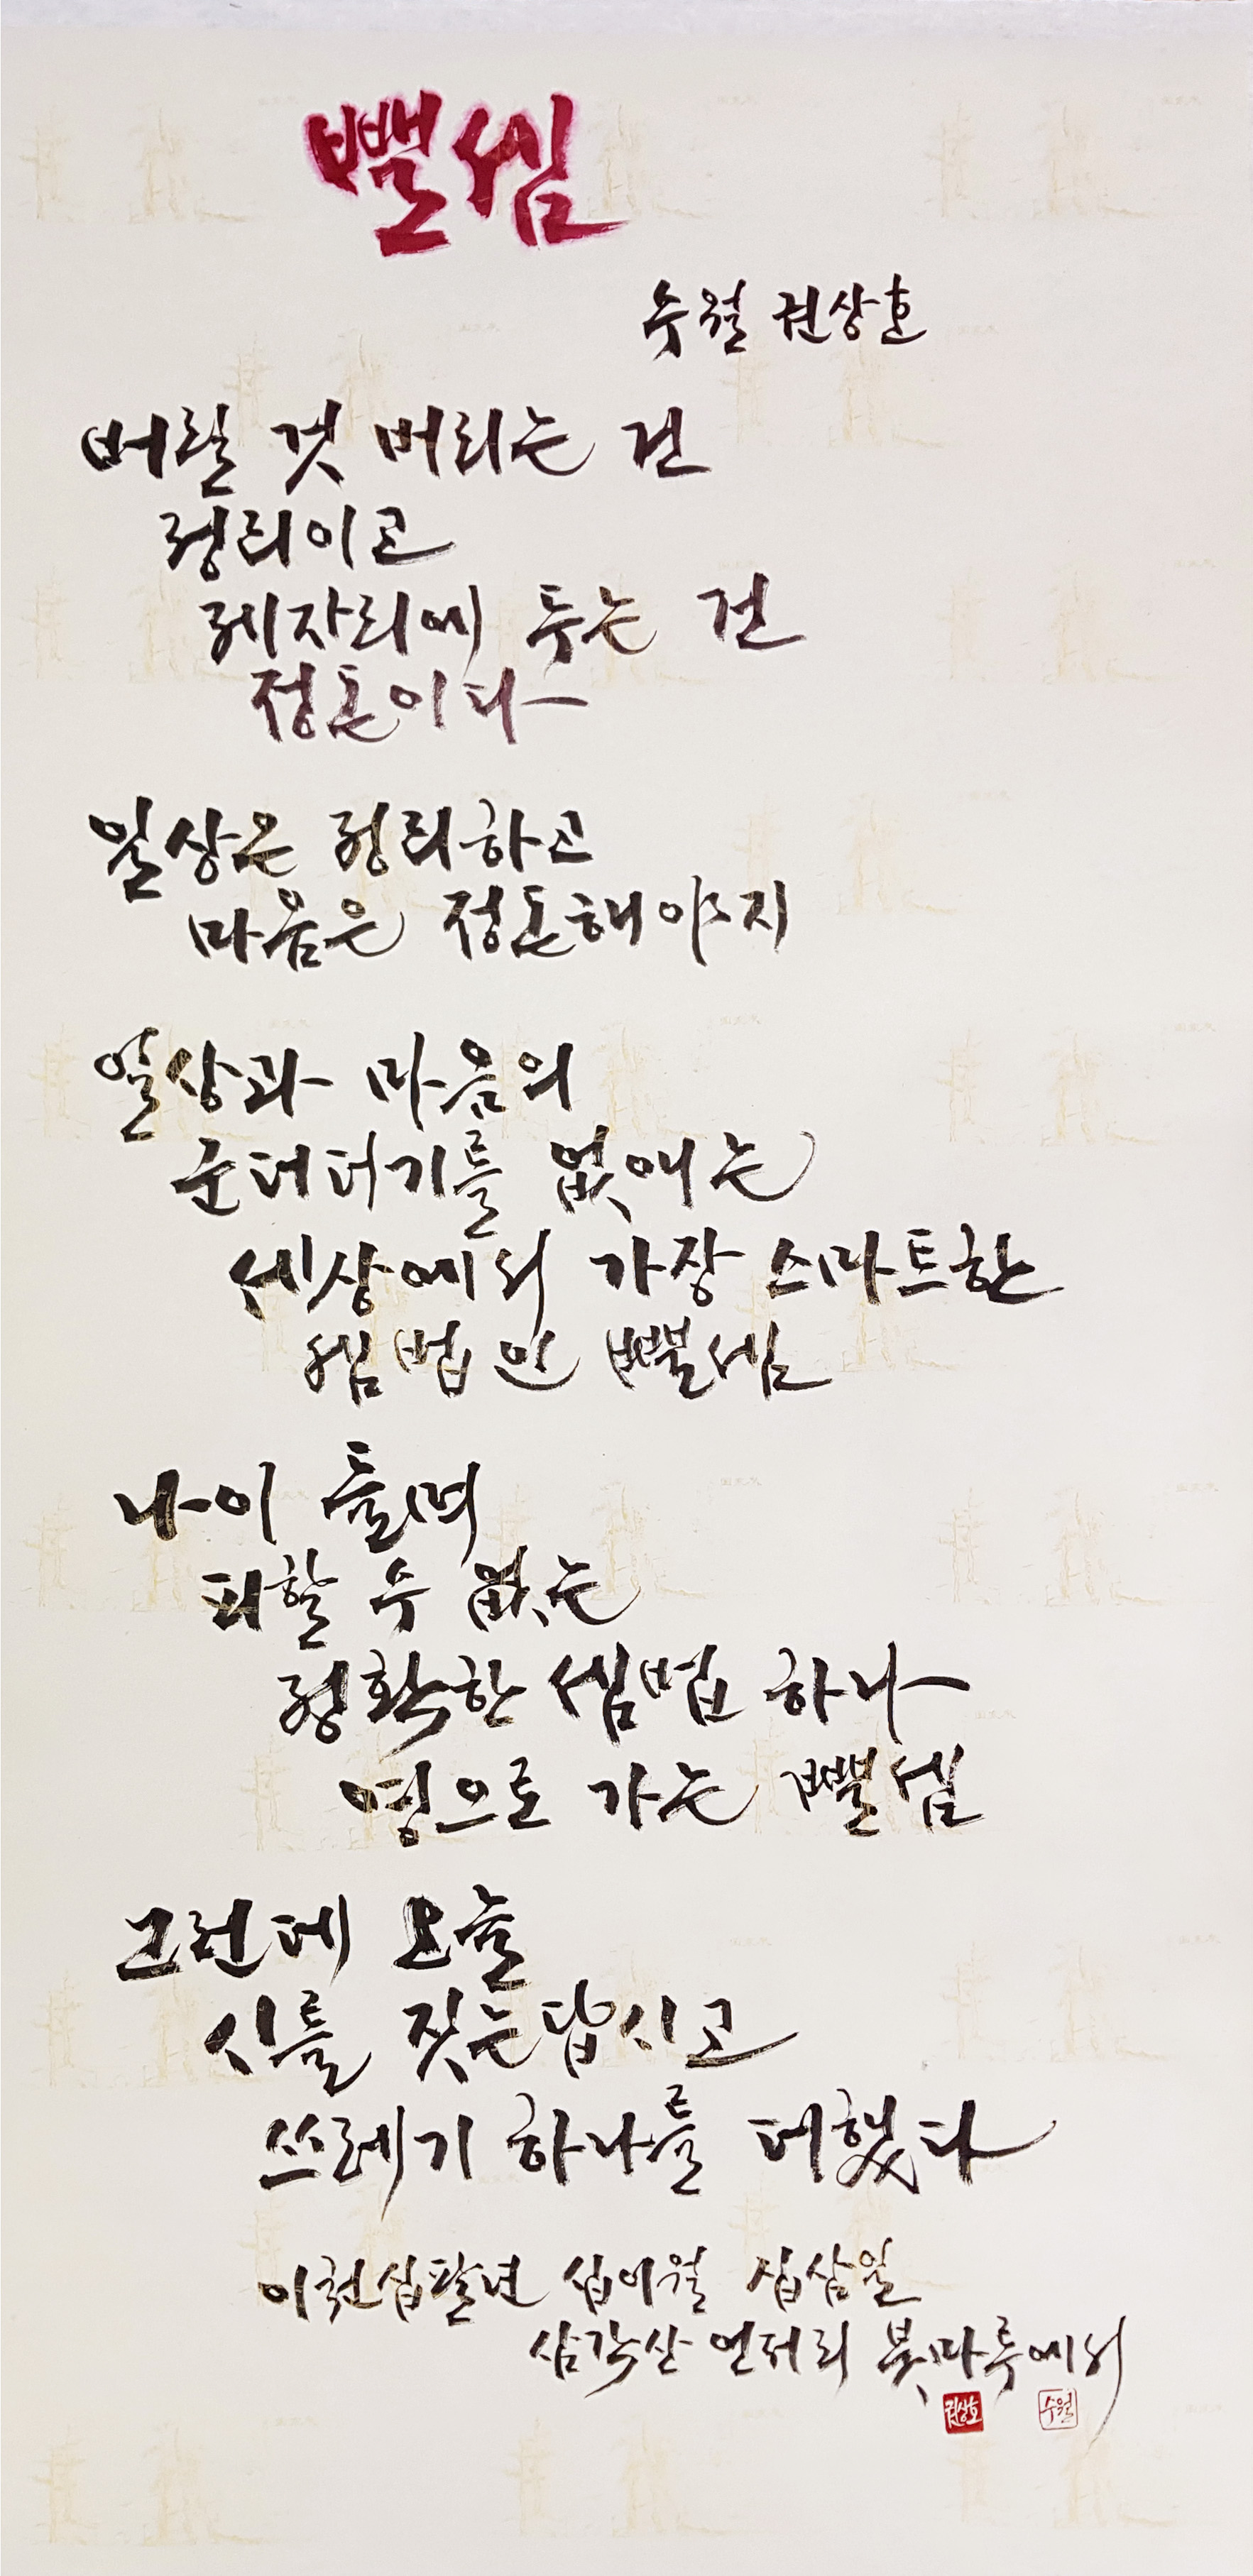 뺄셈
수월 권상호
버릴 것 버리는 건
정리이고
제자리에 두는 건
정돈이다
일상은 정리하고
마음은 정돈해야지
일상과 마음의
군더더기를 없애는
세상에서 가장 스마트한
셈법인 뺄셈
나이 들며
피할 수 없는
정확한 셈법 하나
영으로 가는 뺄셈
그런데 오늘
시를 짓는답시고
쓰레기 하나를 더했다
이천십팔년 십이월 십삼일
삼각산 언저리 붓마루에서
권상호 수월